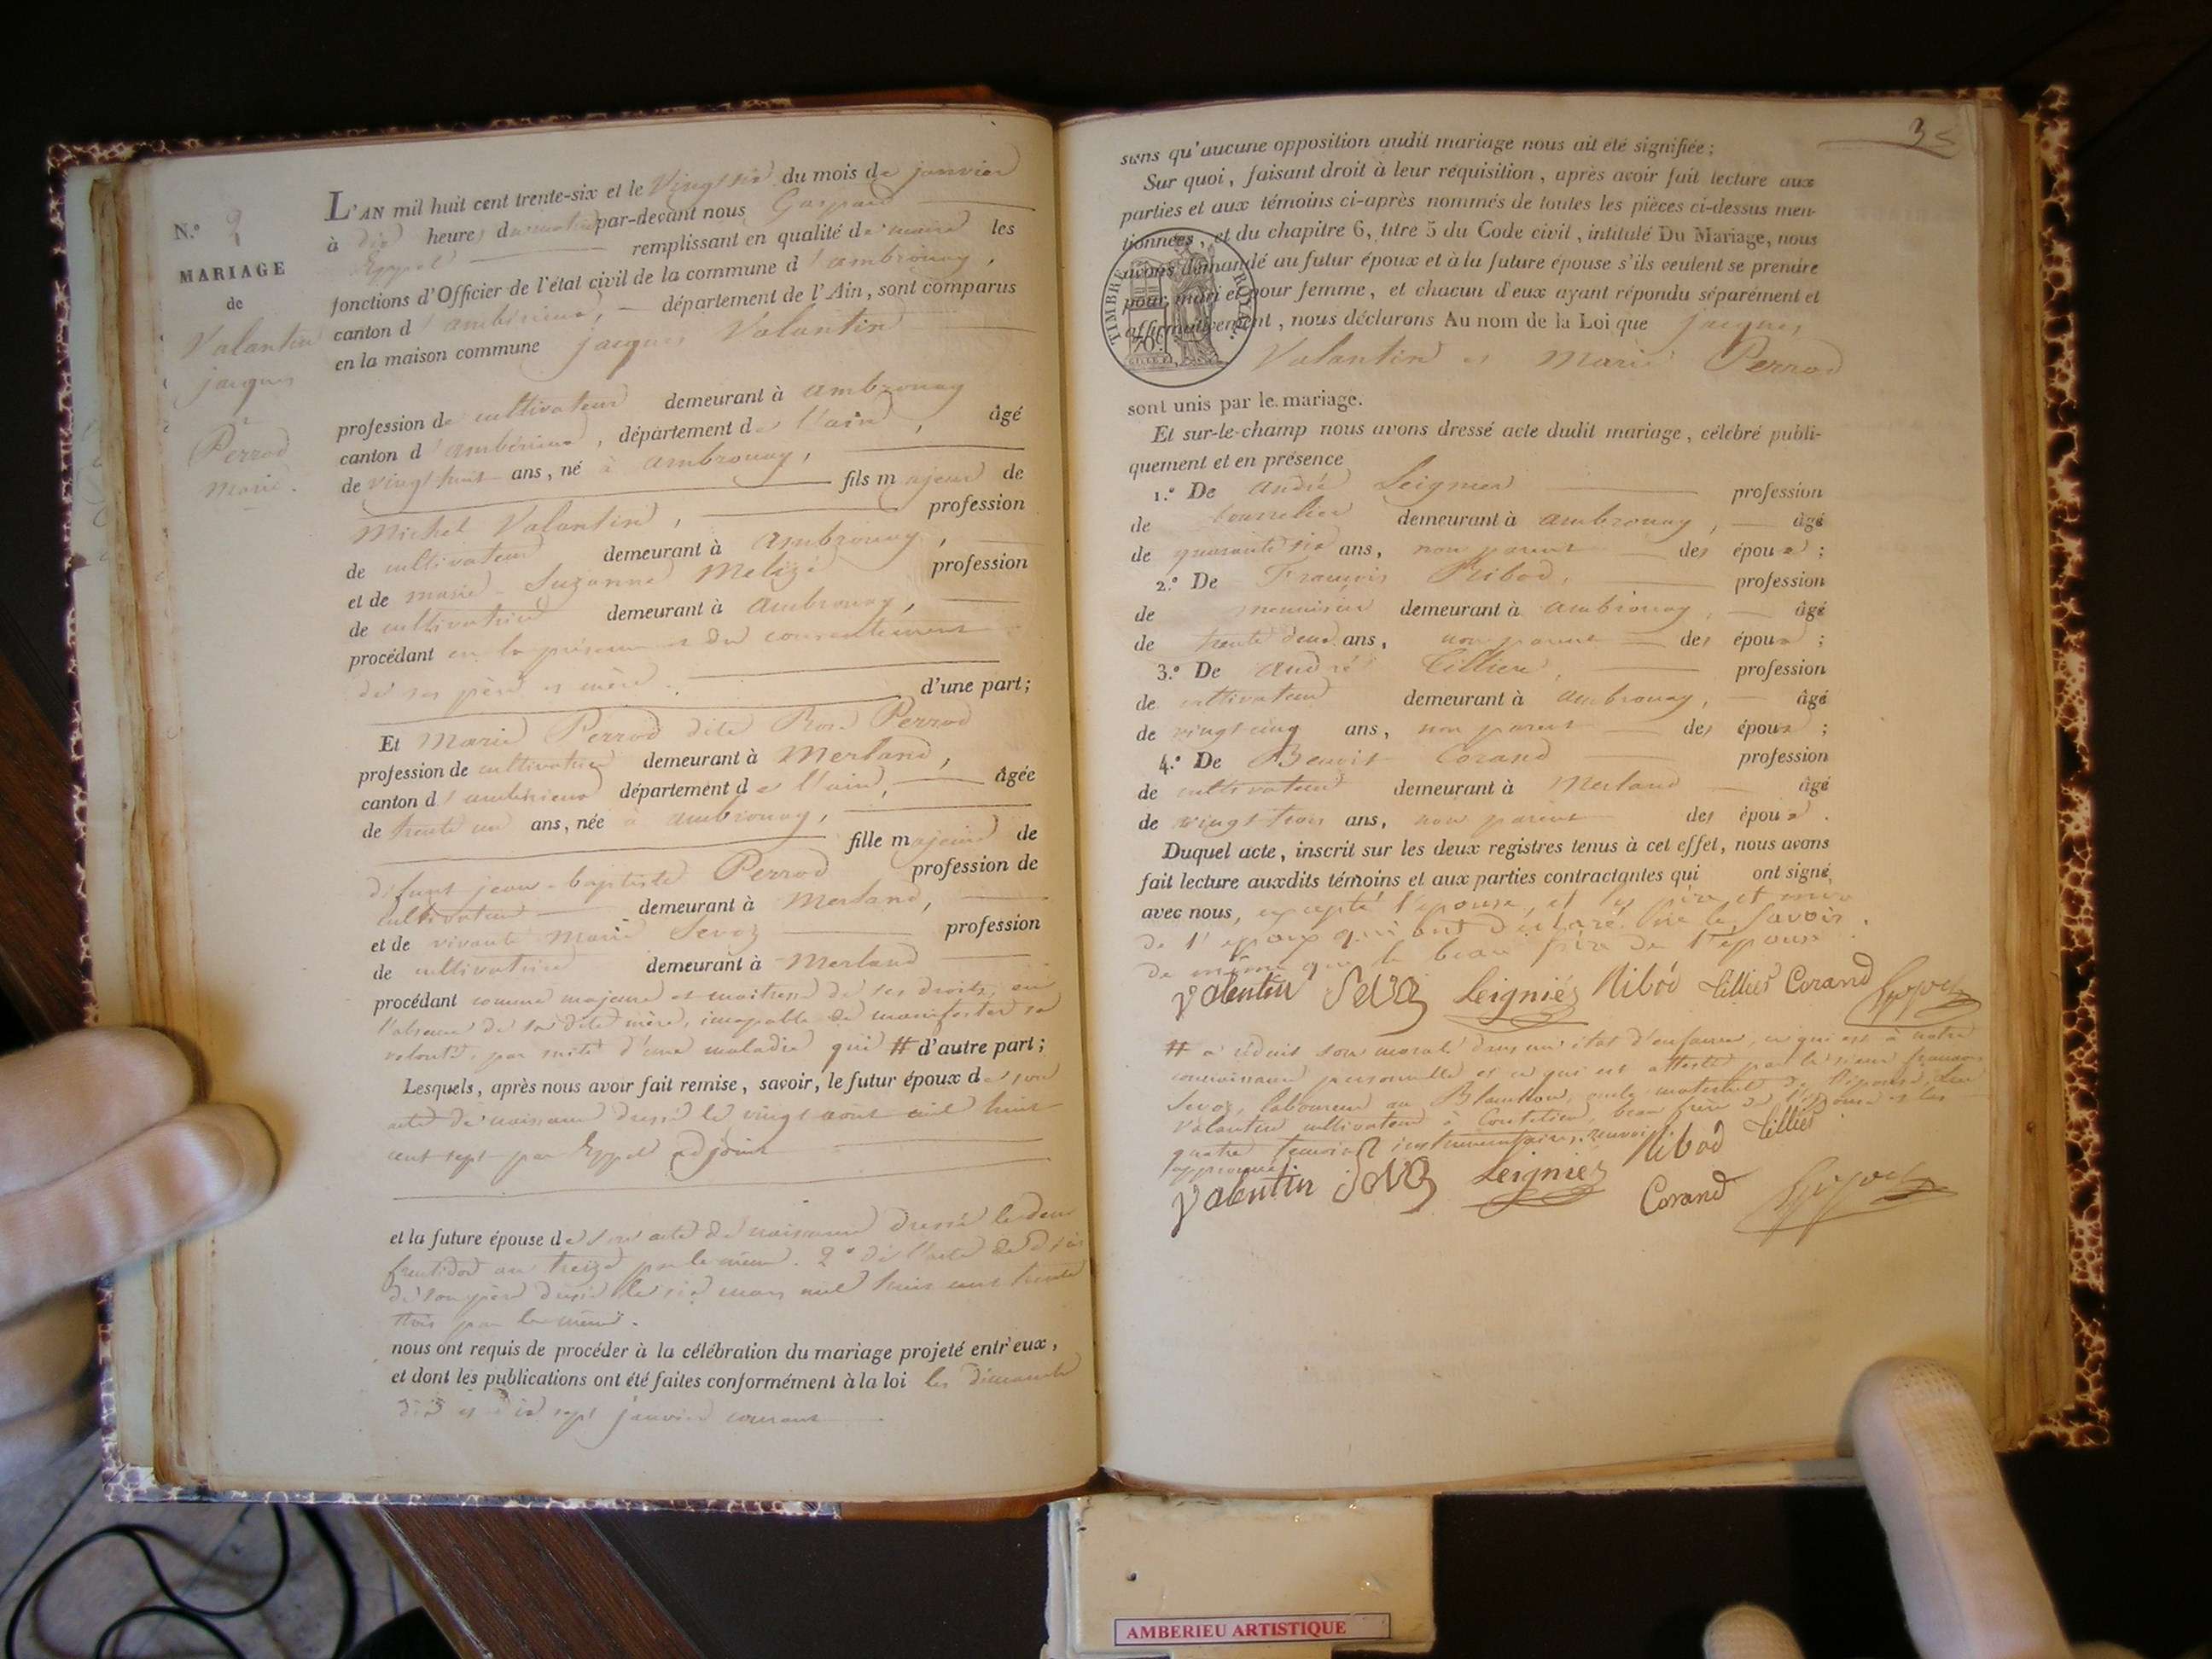 N.º 2
MARIAGE
de
Valantin
jacques
et
Perrod
marie.
L'AN mil huit cent trente-six et le vingt six du mois de janvier
à dix heures du matin par-devant nous Gaspard
Eyppel remplissant en qualité de maire les
fonctions d'Officier de l'état civil de la commune d'ambronay,
canton d'ambérieux, département de l'Ain, sont comparus
en la maison commune jacques Valantin
profession de cultivateur demeurant à ambronay
canton d'ambérieux, département de l'ain, âgé
de vingt huit ans, né à ambronay,
fils majeur de
Michel Valantin, profession
de cultivateur demeurant à ambronay,
et de marie-Suzanne Melizé profession
de cultivatrice demeurant à ambronay,
procédant en la présence et du consentement
de ses père et mère. d'une part;
Et Marie Perrod dite Rose Perrod
profession de cultivatrice demeurant à Merland,
canton d'ambérieux département de l'ain, âgée
de trente un ans, née à ambronay,
fille majeure de
défunt jean-baptiste Perrod profession de
cultivateur demeurant à Merland,
et de vivante Marie Sevoz profession
de cultivatrice demeurant à Merland
procédant comme majeure et maitresse de ses droits, en
l'absence de sa dite mère, incapable de manifester sa
volonté, par suite d'une maladie qui # d'autre part;
Lesquels, après nous avoir fait remise, savoir, le futur époux de son
acte de naissance dressé le vingt août mil huit
cent sept par Eyppel adjoint
et la future épouse de son acte de naissance dressé le deux
fructidor an treize par le même. 2º de l'acte de décès
de son père dressé le six mars mil huit cent trente
trois par le même.
nous ont requis de procéder à la célébration du mariage projeté entr'eux,
et dont les publications ont été faites conformément à la loi les dimanche
dix et dix sept janvier courant
3
sans qu'aucune opposition audit mariage nous ait été signifiée;
Sur quoi, faisant droit à leur réquisition, après avoir fait lecture aux
parties et aux témoins ci-après nommés de toutes les pièces ci-dessus men-
tionnées, et du chapitre 6, titre 5 du Code civil, intitulé Du Mariage, nous
avons demandé au futur époux et à la future épouse s'ils veulent se prendre
pour mari et pour femme, et chacun d'eux ayant répondu séparément et
affirmativement, nous déclarons Au nom de la Loi que jacques
Valantin et Marie Perrod
TIMBRE ROYAL
sont unis par le mariage.
Et sur-le-champ nous avons dressé acte dudit mariage, célébré publi-
quement et en présence
1.º De andré Leignier profession
de bourrelier demeurant à ambronay, âgé
de quarante six ans, non parent des époux;
2.º De François Ribod, profession
de menuisier demeurant à ambronay, âgé
de trente deux ans, non parent des époux;
3.º De andré Tillier, profession
de cultivateur demeurant à ambronay, âgé
de vingt cinq ans, non parent des époux;
4.º De Benoit Corand profession
de cultivateur demeurant à Merland âgé
de vingt trois ans, non parent des époux.
Duquel acte, inscrit sur les deux registres tenus à cet effet, nous avons
fait lecture auxdits témoins et aux parties contractantes qui ont signé
avec nous, excepté l'épouse, et les père et mère
de l'époux qui ont déclaré ne le savoir.
de même que le beau frère de l'épouse.
Valentin Sevoz Leigniés Ribod Tillier Corand
# a réduit son moral dans un état d'enfance, ce qui est à notre
connaissance personnelle et ce qui est attesté par le sieur françois
Sevoz, laboureur au Blanchon, oncle maternel de l'épouse,
Valantin cultivateur à beau frère de l'épouse et les
quatre témoins instrumentaires. renvoi
approuvé.
Valentin Sevoz Leigniés Ribod Tillier
Corand
AMBERIEU ARTISTIQUE